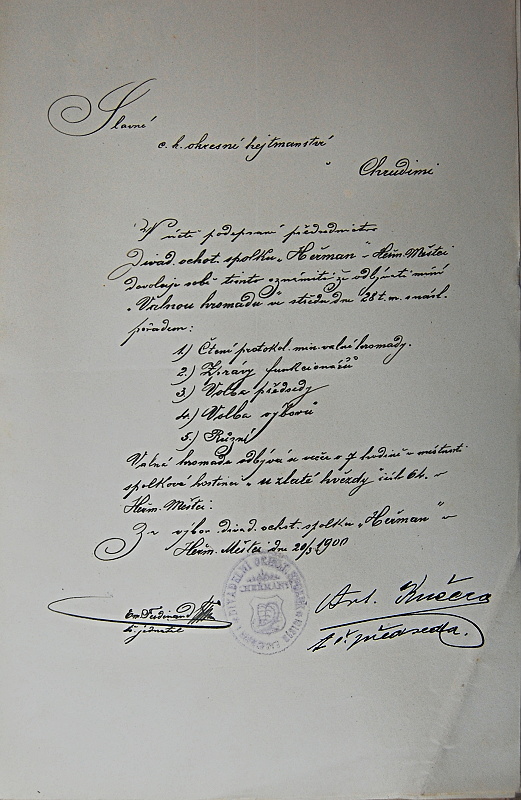 Slavné
c. k. okresní hejtmanství
v Chrudimi
V úctě podepsaní předsednictvo
Divad. ochot. spolku „Heřman" v Heřm. Městci
dovoluje sobě tímto oznámiti že odbývati míní
„Valnou hromadu" ve středu dne 28 t. m. s násl.
pořadem:
1) Čtení protokol. min. valní hromady.
2.) Zprávy funkcionářů
3) Volba předsedy
4) Volba výborů
5.) Různé
Valná hromada odbývá se večer o 7 hodině v místnosti
spolkové hostinci „u zlaté hvězdy" čís. 64. v
Heřm. Městci.
Za výbor divad. ochot. spolku „Heřman" v
Heřm. Městci dne 20/3 1900
Em. Ferdinand
t. č. jednatel
Ant. Kučera
t. č. předseda.
DIVADELNÍ OCHOT. SPOLEK
HEŘMAN